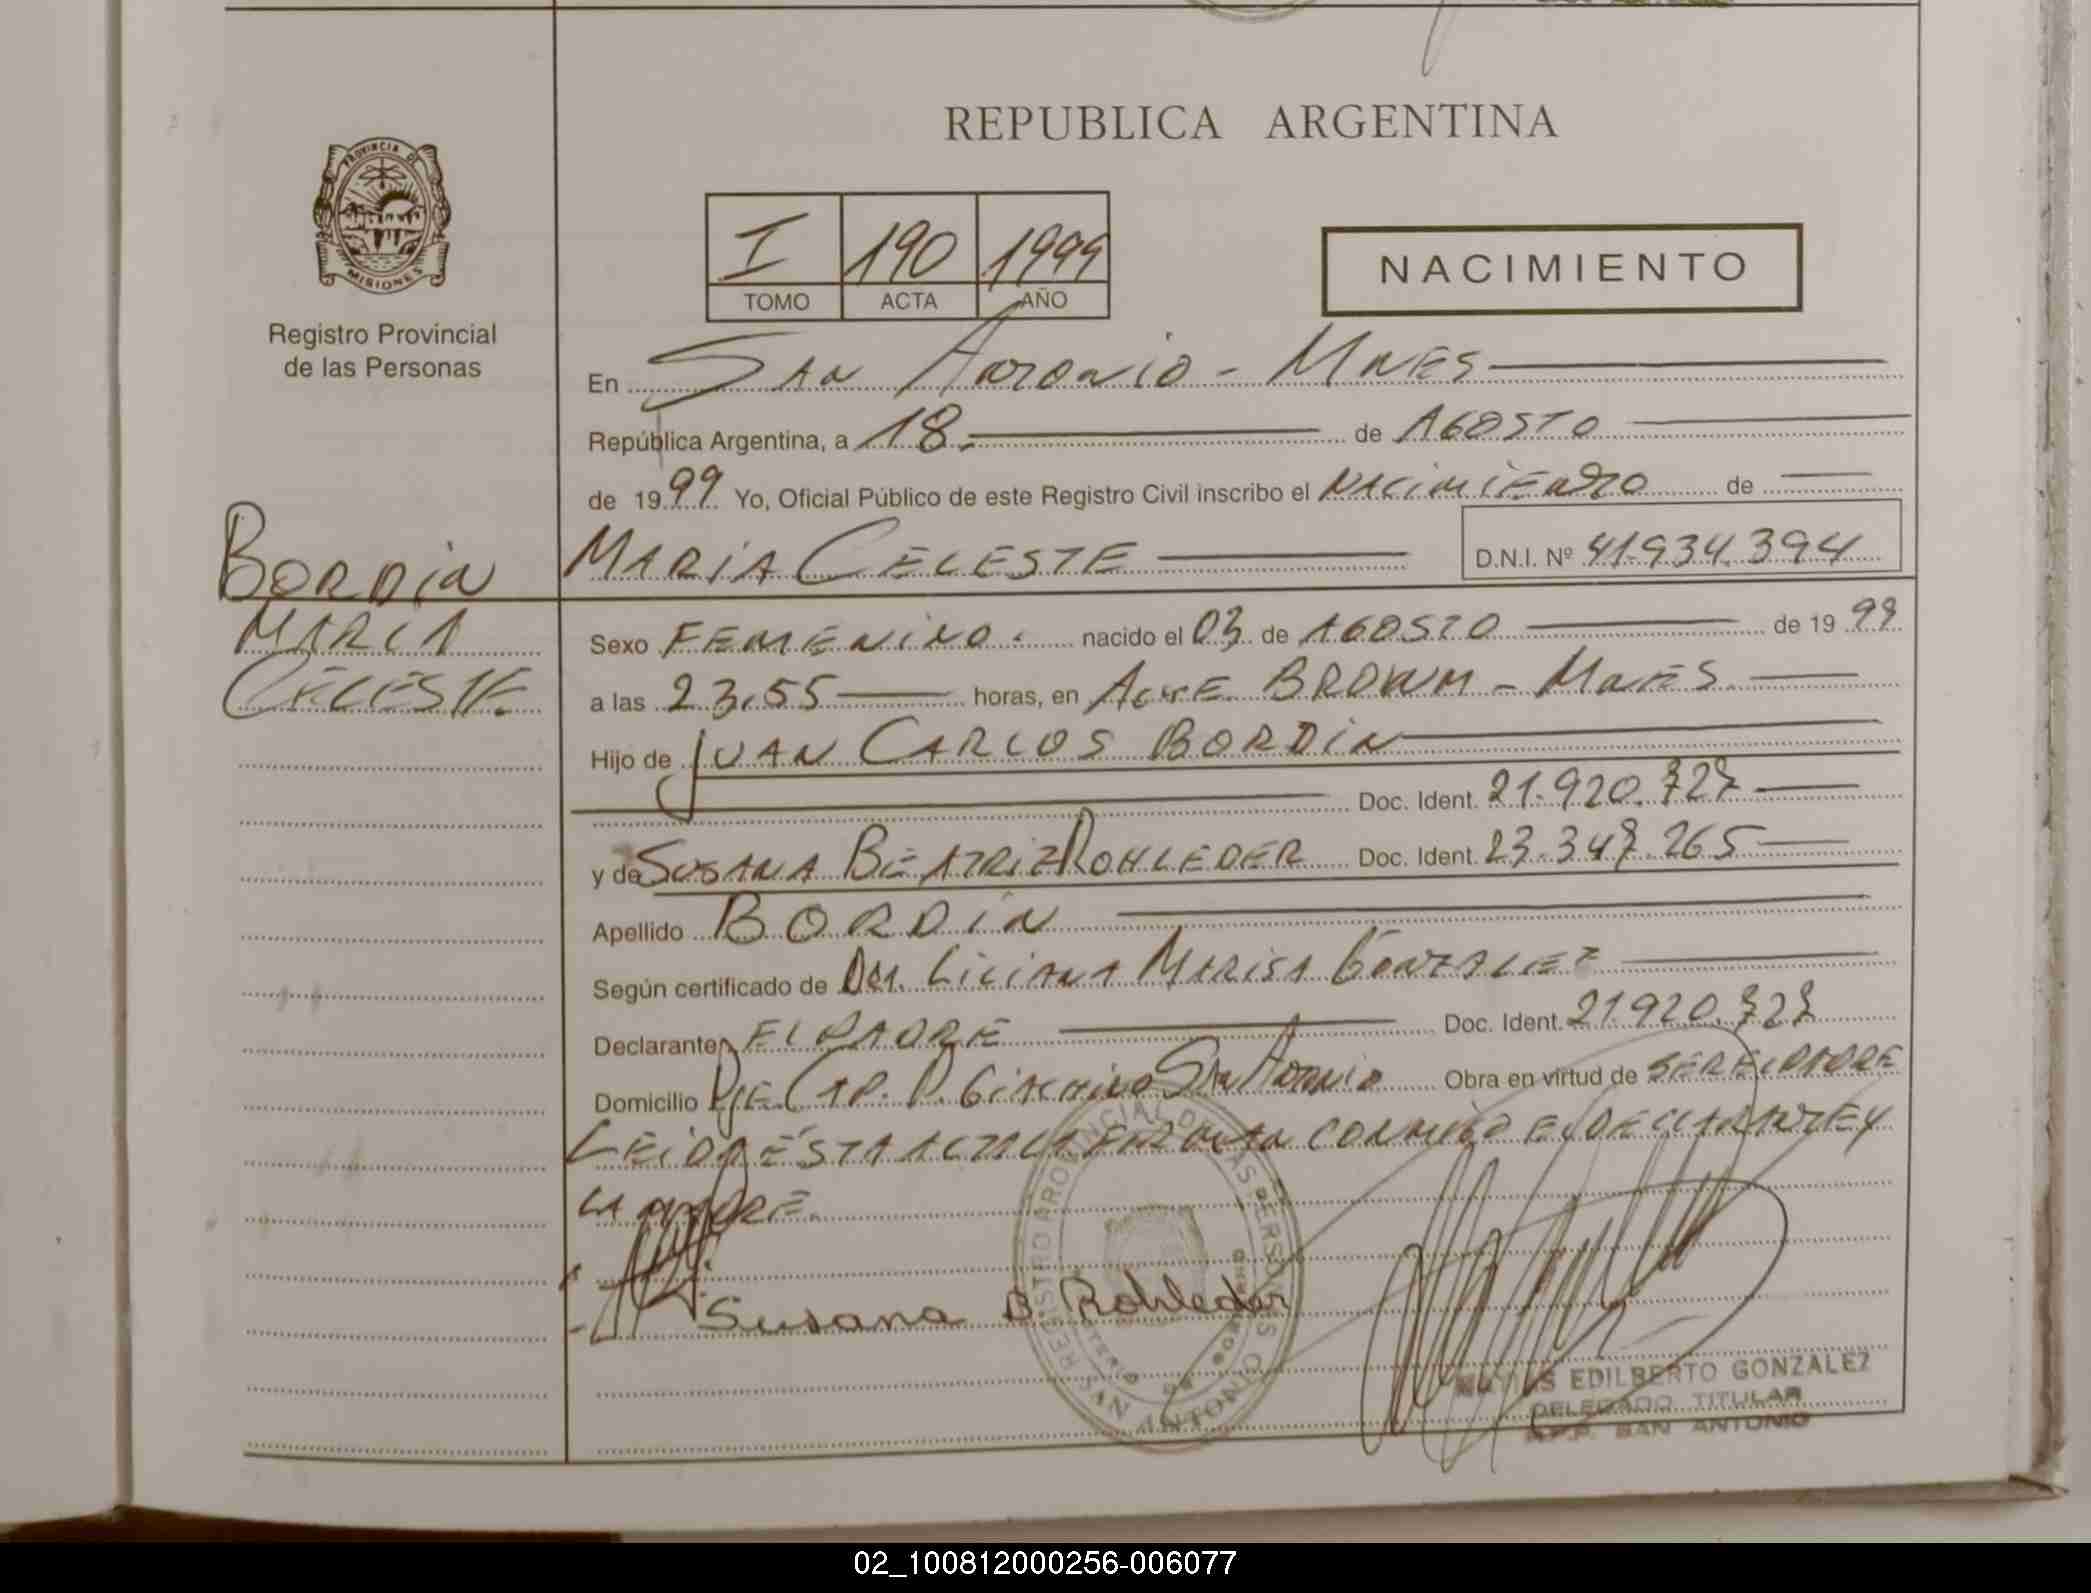 REPUBLICA ARGENTINA
PROVINCIA DE
MISIONES
Registro Provincial
de las Personas
I 190 1999
TOMO ACTA AÑO
NACIMIENTO
En San Antonio - Mnes
República Argentina, a 18.- de Agosto
de 1999 Yo, Oficial Público de este Registro Civil inscribo el Nacimiento de
Maria Celeste D.N.I. Nº 41.934.394
Bordin
Maria
Celeste
Sexo Femenino. nacido el 03 de Agosto de 1999
a las 23,55 horas, en Alte. Brown - Mnes
Hijo de Juan Carlos Bordin
Doc. Ident. 21.920.727
y de Susana Beatriz Rohleder Doc. Ident. 23.347.265
Apellido Bordin
Según certificado de Dra. Liliana Marisa Gonzalez
Declarante El Padre Doc. Ident. 21.920.727
Domicilio Pje. Cap. P. Giachino San Antonio Obra en virtud de ser el padre
Leida esta acta la firman conmigo el declarante y
la madre.
Susana B Rohleder
REGISTRO PROVINCIAL DE LAS PERSONAS
SAN ANTONIO
EDILBERTO GONZALEZ
DELEGADO TITULAR
R.P.P. SAN ANTONIO
02_100812000256-006077